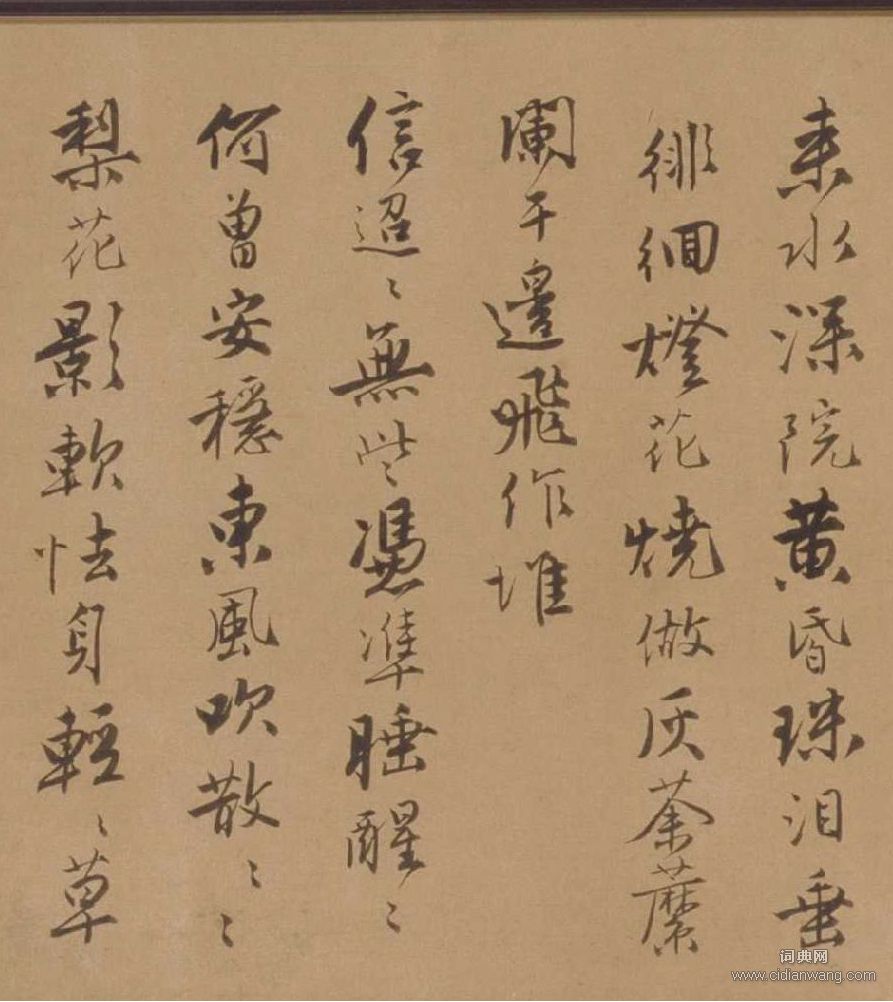 水深院黄昏珠泪垂
徘徊燈花燒做灰荼蘼
闌干邊飛作堆
信迢〻無些〻憑準睡醒〻
何曾安穩東風吹散〻〻
梨花影軟怯身輕〻草
词典网
www.cidianwang.com